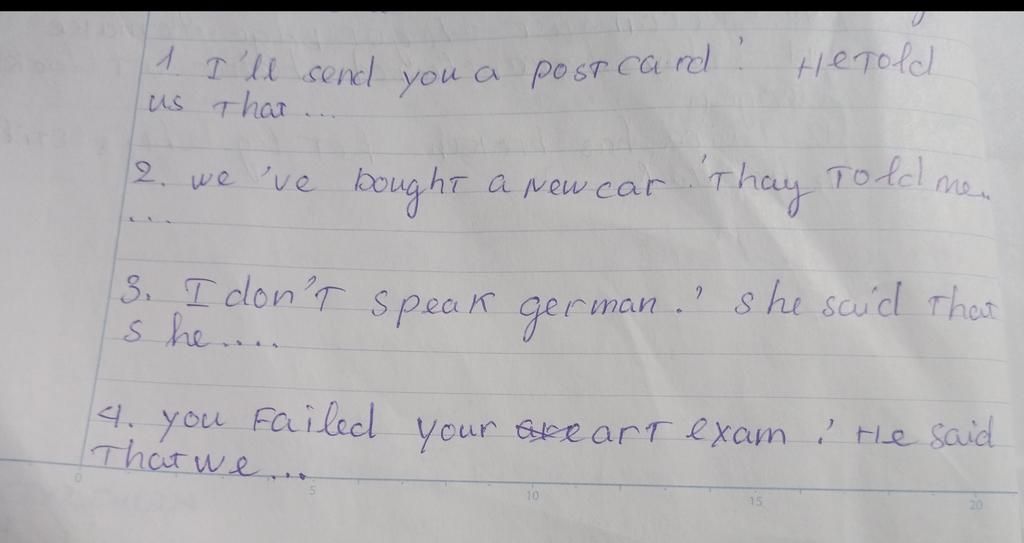 1. I'll send you a postcard.' He told
us that...
2. we've bought a new car.' Thay Told me..
...
3. I don't speak german.' she said That
she....
4. you Failed your art exam.' He said
That we...
0 5 10 15 20